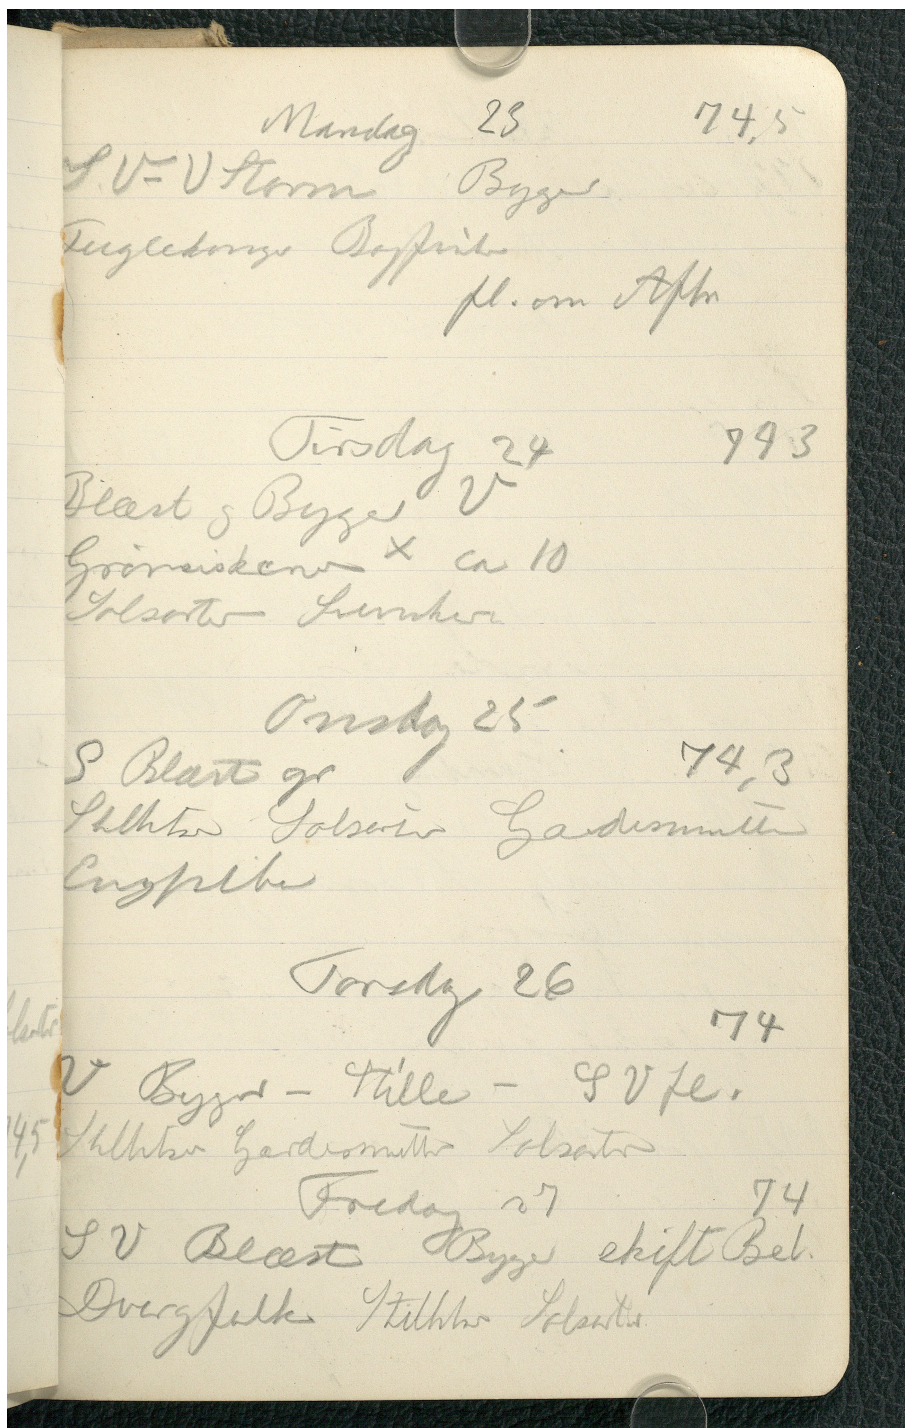 Mandag 23 74,5
S.V-V Storm Byger
Fuglekonge Bogfinke
fl. om Aftn
Tirsdag 24 793
Blæst g Byger V
Grønsiskener x ca 10
Solsorter
Onsdag 25
S Blæst gr 74,3
Stillitser Solsorter Gærdesmutter
Engpiber
Torsdag 26
74
V Byger - Stille - SV fl.
Stillitser Gærdesmutter Solsorter
Fredag 27 74
SV Blæst Byger skift Bel.
Dvergfalk Stillitser Solsorter
74,5